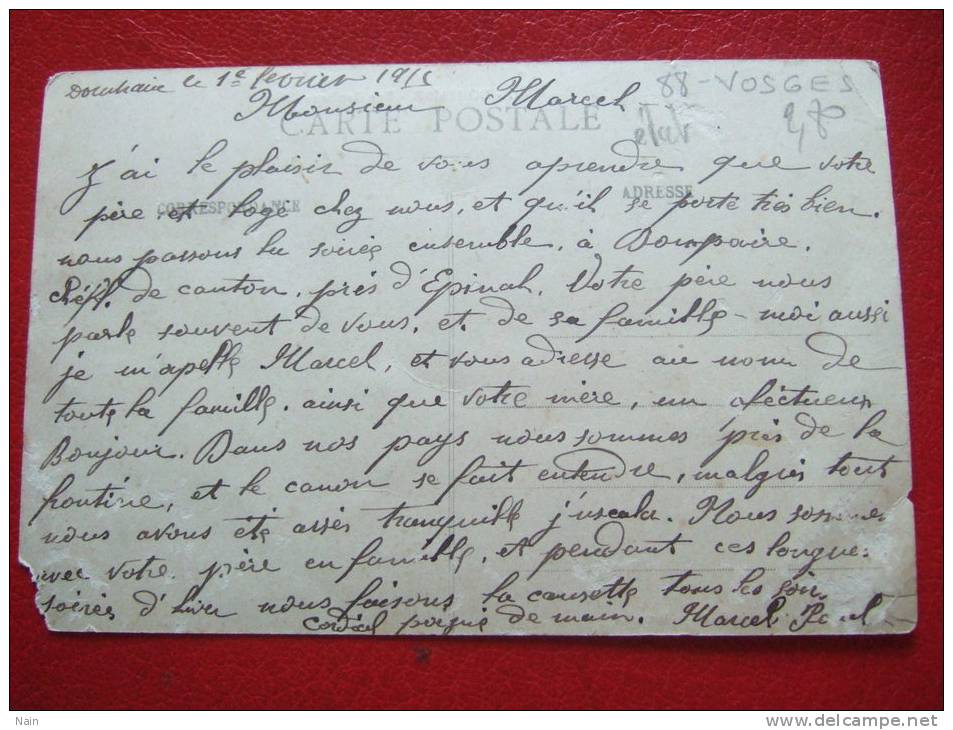 le 1e fevrier 1915
88 - VOSGES
Monsieur Marcel
CARTE POSTALE
J'ai le plaisir de vous aprendre que votre
CORRESPONDANCE
ADRESSE
père, et loge chez nous, et qu'il se porte très bien.
nous passons la soirée ensemble, à Dompaire,
chef l. de canton, près d'Epinal, Votre père nous
parle souvent de vous, et de sa famille - moi aussi
je m'apelle Marcel, et vous adresse au nom de
toute la famille, ainsi que votre mère, un afectueux
Bonjour. Dans nos pays nous sommes près de la
frontière, et le canon se fait entendre, malgres tout
nous avons étés assés tranquille j'uscala. Nous sommes
avec votre père en famille, et pendant ces longues
soirées d'hiver nous faisons la causette tous les soir,
cordial pognie de main. Marcel Paul
Nain
www.delcampe.net